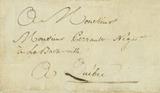 A Monsieur
Monsieur Perrault Négt
à La Basse ville
A Québec